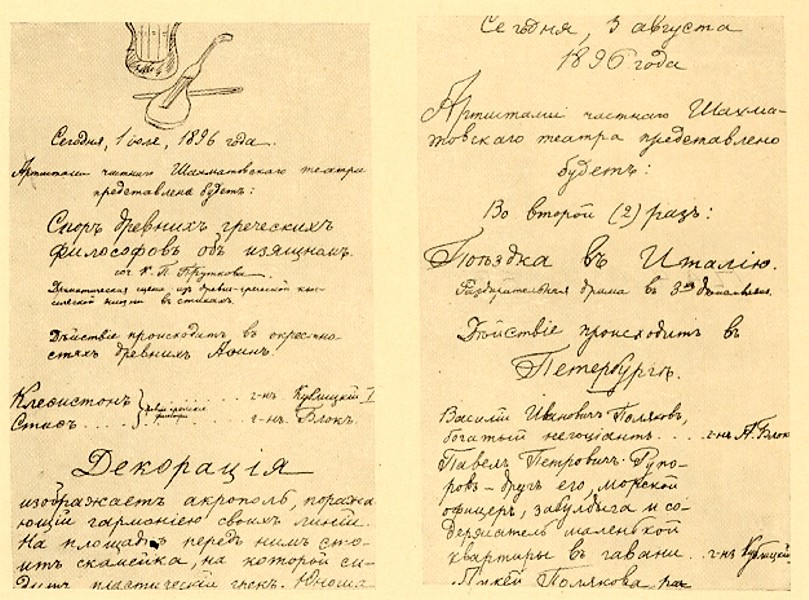 Сегодня, 1 іюля, 1896 года.
Артистами частнаго Шахматовскаго театра
представлена будетъ:
Споръ древнихъ греческихъ
философовъ объ изящномъ.
соч. К. П. Пруткова.
Драматическая сцена изъ древне-греческой клас-
сической жизни въ стихахъ.
Дѣйствіе происходитъ въ окрестно-
стяхъ древнихъ Аѳинъ.
Клефистонъ . . . . . . г-нъ Кублицкій I
Стифъ . . . . . . г-нъ Блокъ.
Декорація
изображаетъ акрополь, поража-
ющій гармоніею своихъ линій.
На площадкѣ передъ нимъ сто-
итъ скамейка, на которой си-
дитъ пластическій грекъ. Юноша
Сегодня, 3 августа
1896 года
Артистами частнаго Шахма-
товскаго театра представлено
будетъ:
Во второй (2) разъ:
Поѣздка въ Италію.
Раздирательная драма въ 3хъ дѣйствіяхъ.
Дѣйствіе происходитъ въ
Петербургѣ.
Василій Ивановичъ Поляковъ,
богатый негоціантъ . . . . г-нъ А. Блокъ
Павелъ Петровичъ Рупо-
ровъ – другъ его, морской
офицеръ, забулдыга и со-
держатель маленькой
квартиры въ гавани . . г-нъ Кублицкій
Лакей Полякова